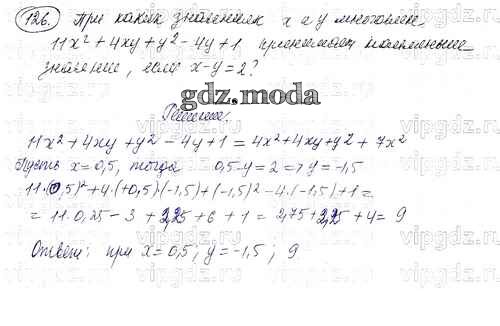 126. При каких значениях x и y многочлен
11x² + 4xy + y² - 4y + 1 принимает наименьшее
значение, если x - y = 2?
gdz.moda
Решение.
11x² + 4xy + y² - 4y + 1 = 4x² + 4xy + y² + 7x²
Пусть x = 0,5, тогда 0,5 - y = 2 => y = -1,5
11·(0,5)² + 4·(+0,5)·(-1,5) + (-1,5)² - 4·(-1,5) + 1 =
= 11·0,25 - 3 + 2,25 + 6 + 1 = 2,75 + 2,25 + 4 = 9
Ответ: при x = 0,5; y = -1,5; 9